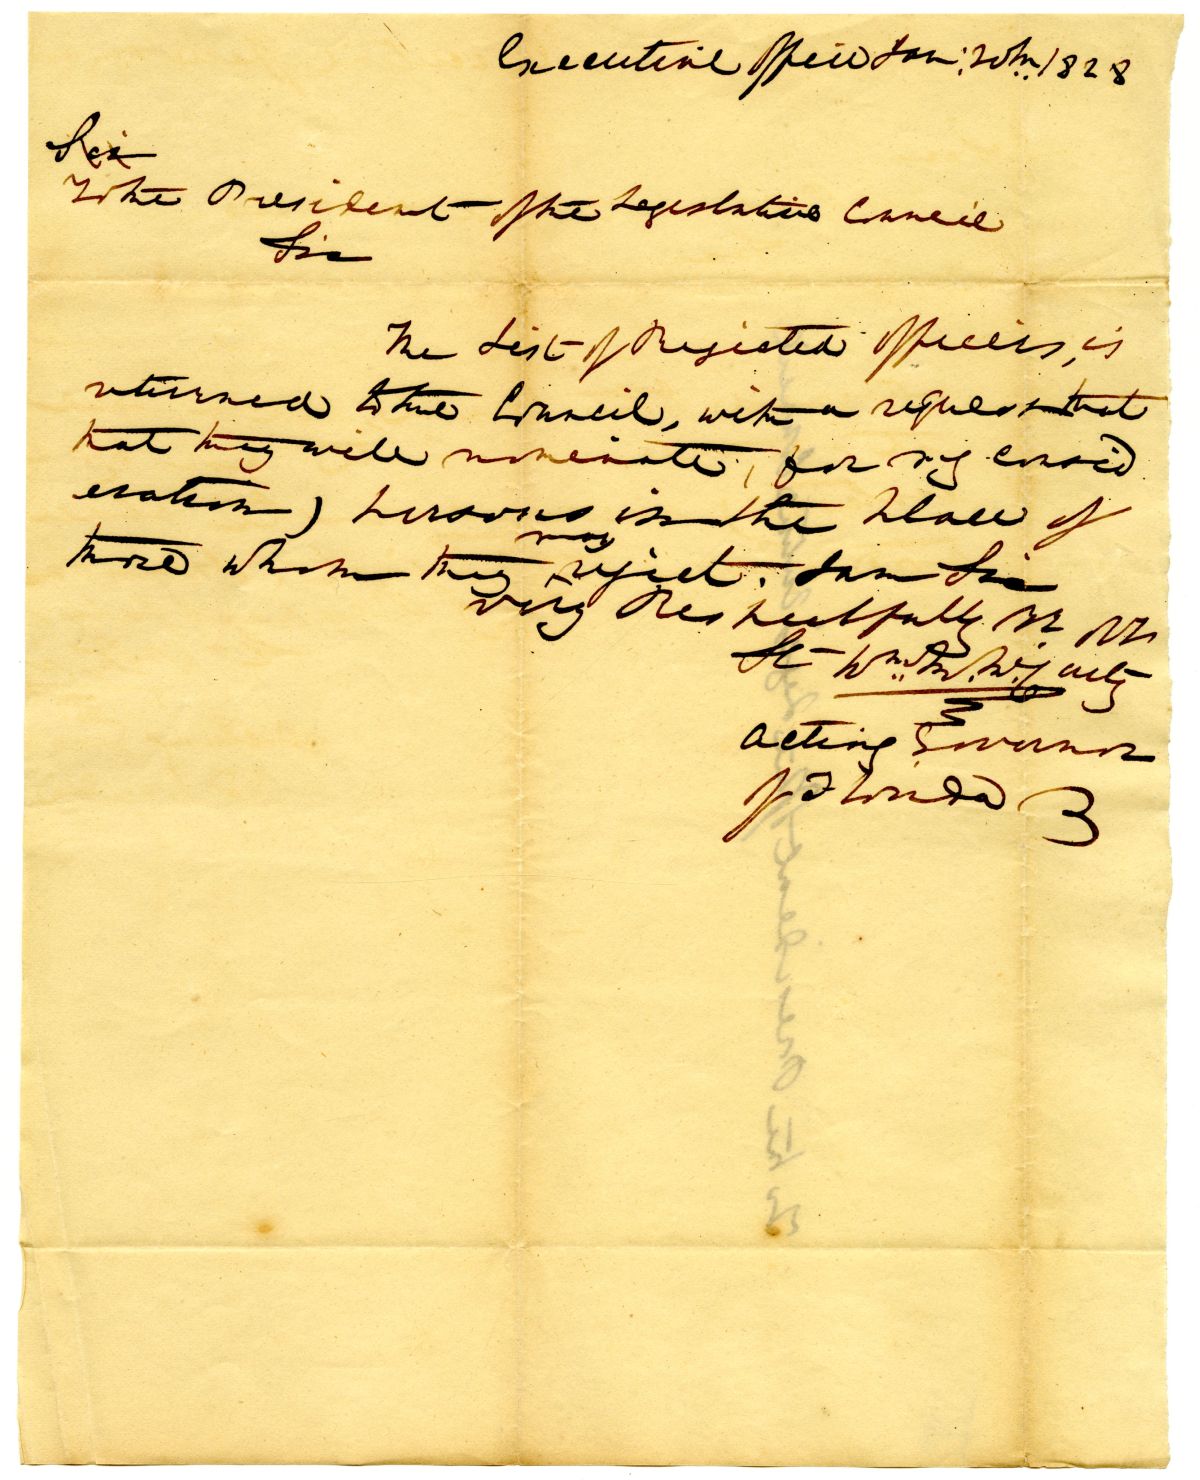 Executive Office Jan: 20th 1828
Sir
To the President of the Legislative Council
Sir
The List of Rejected Officers, is
returned to the Council, with a request that
that they will nominate, for my consid
eration) persons in the place of
those whom they may reject. I am Sir
very Respectfully yr
St Wm. M. McCarty
Acting Governor
of Florida
To the President of the